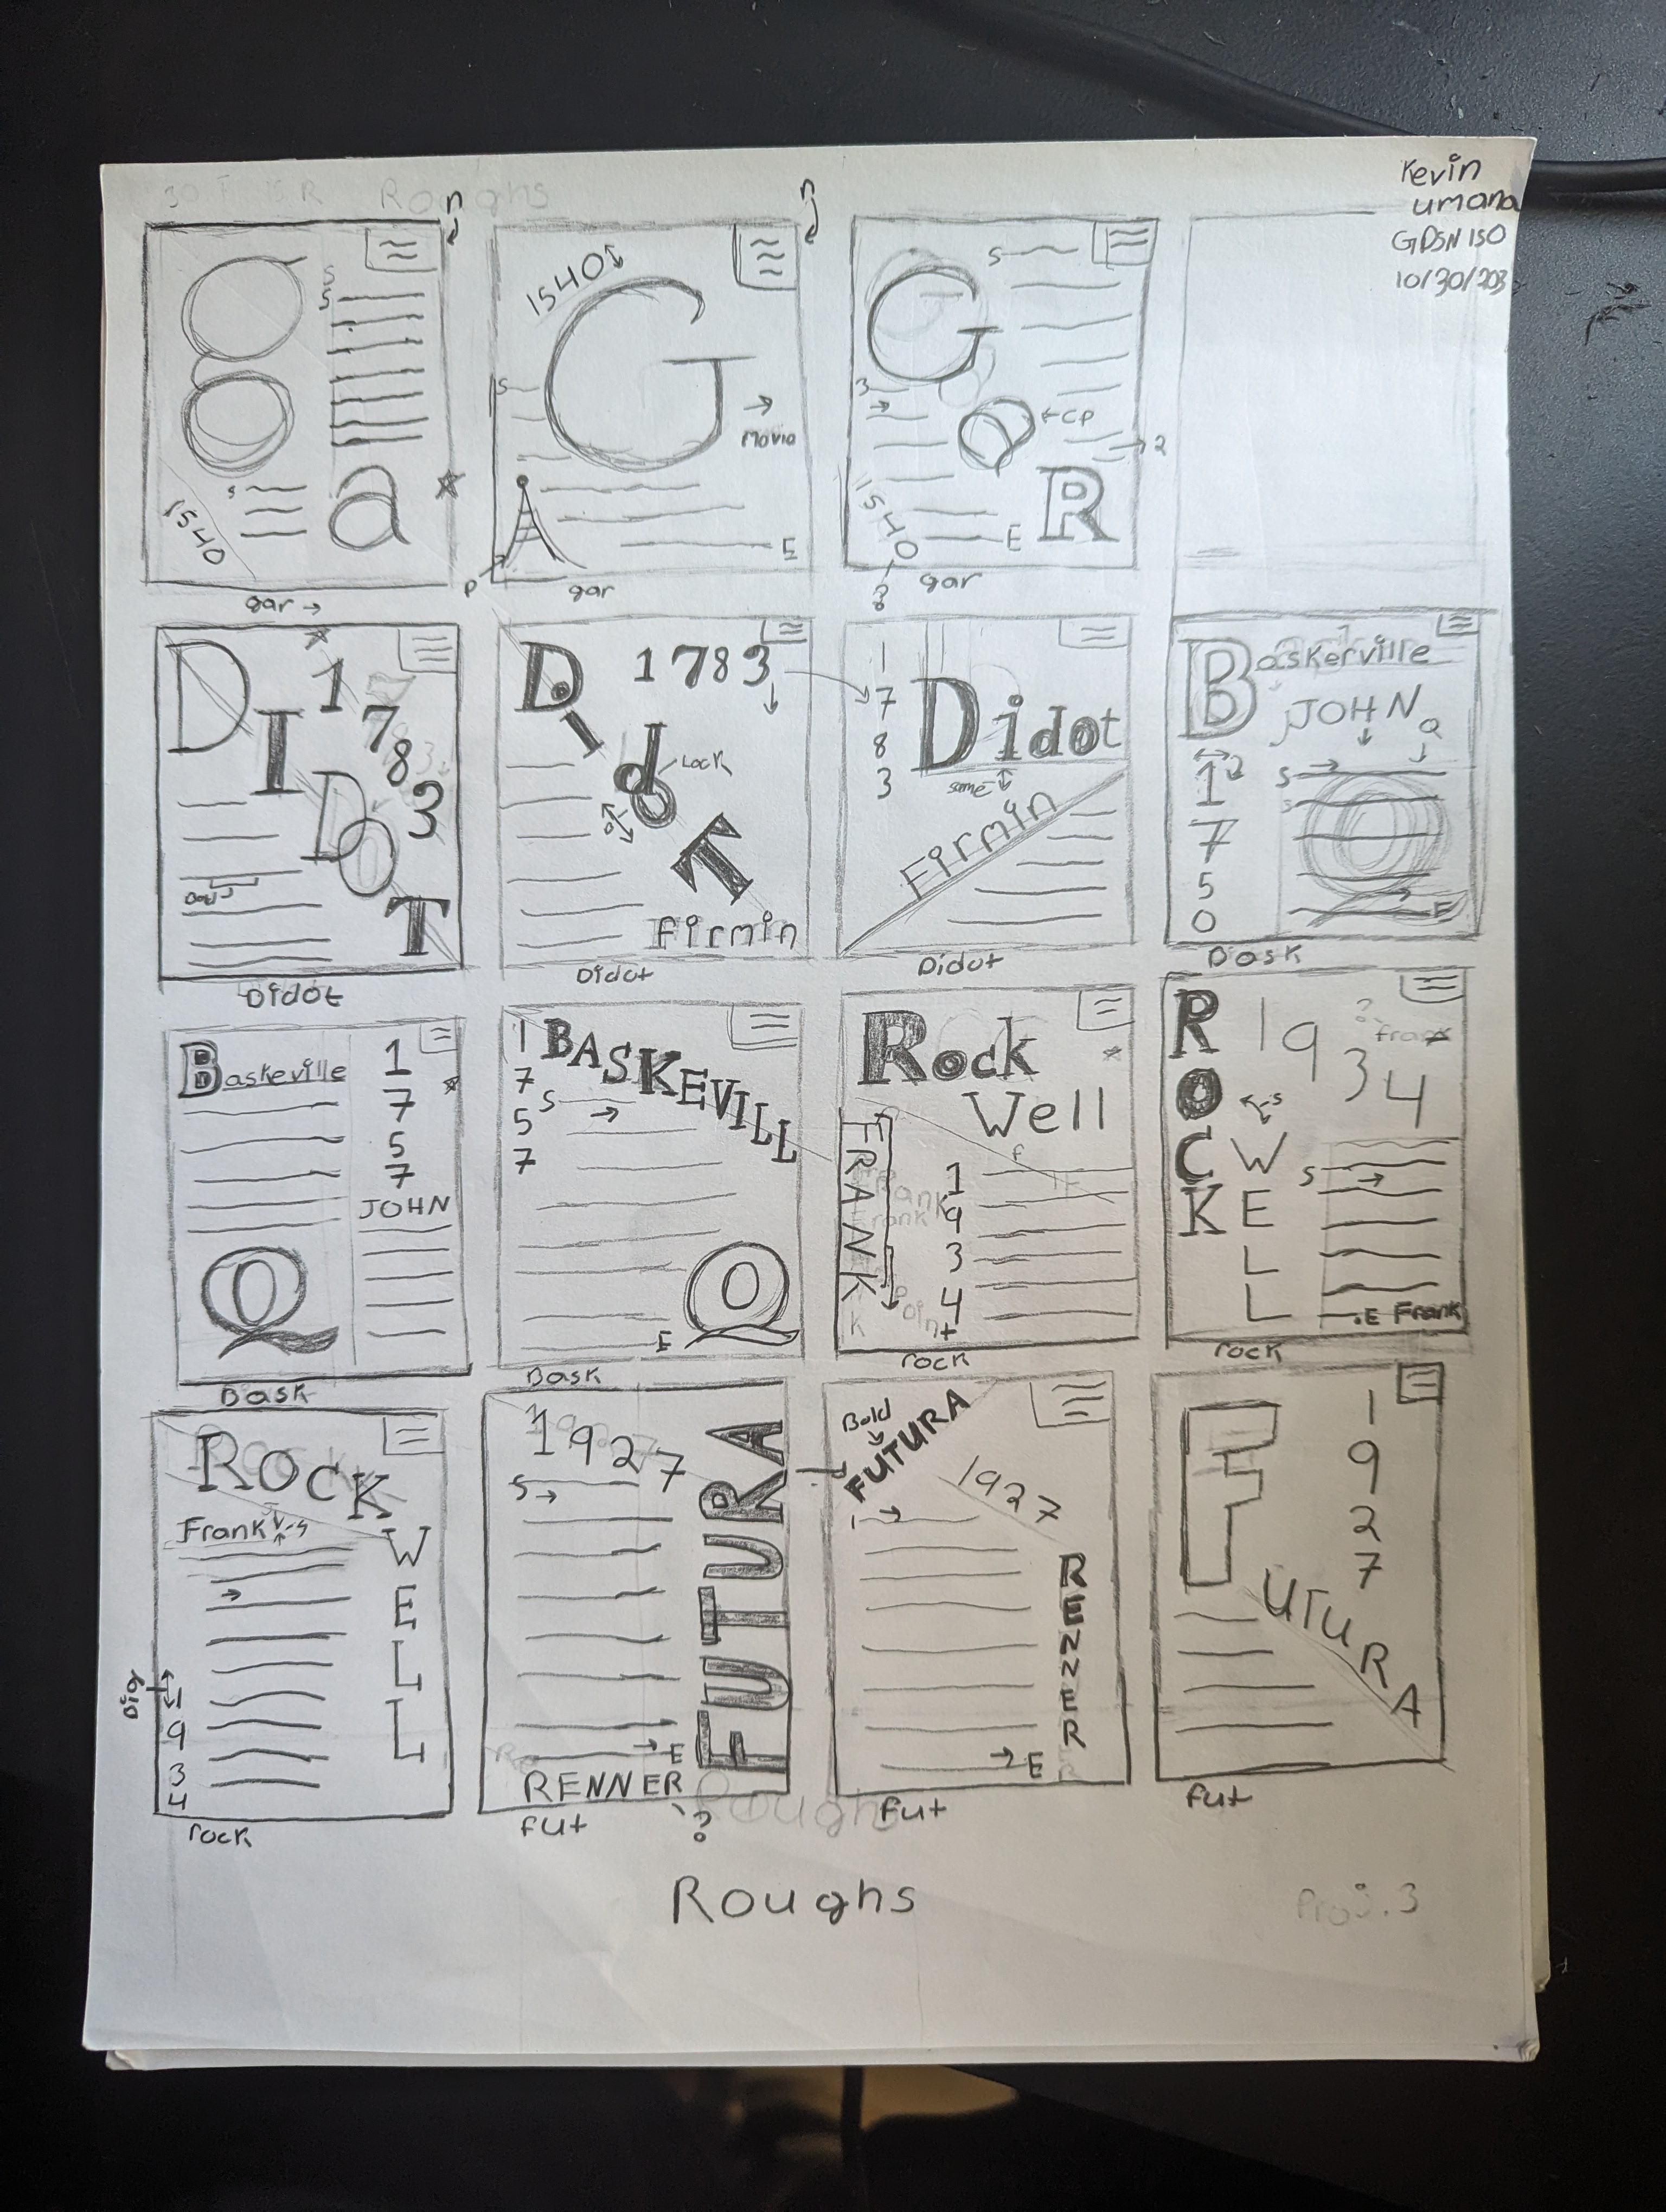 Roughs
Kevin
umana
GDSN 150
10/30/203
n
n
S
S
S
1540
a
gar →
1540
G
S
→
Movio
A
E
P
gar
G
S
3
→
a
←CP
→2
1540
E
R
?
gar
DIDOT
1783
Didot
DIdoT
1783
Lock
Firmin
Didot
1
7
8
3
Didot
same
Firmin
Didot
Baskerville
JOHN
Q
1
7
5
0
S
S
E
Bask
Baskeville
1
7
5
7
JOHN
Q
Bask
1
7
5
7
BASKEVILL
S
→
E
Q
Bask
Rock
Well
FRANK
Frank
Frank
1
9
3
4
f
Point
rock
ROCK
WELL
1934
?
frank
S
S
→
.E Frank
rock
ROCK
WELL
Frank
-s
→
Dig
1
9
3
4
rock
1927
S→
FUTURA
→E
RENNER
?
fut
Bold
FUTURA
1927
1
→
RENNER
→E
Fut
F
UTURA
1
9
2
7
fut
Roughs
Roughs
Proj.3